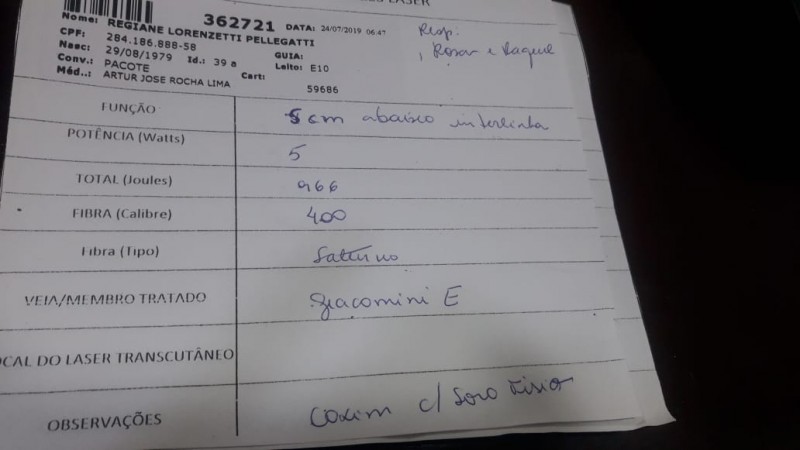 LASER
Nome: REGIANE LORENZETTI PELLEGATTI
362721 DATA: 24/07/2019 06:47
CPF: 284.186.888-58
Nasc: 29/08/1979 Id.: 39 a GUIA:
Conv.: PACOTE Leito: E10
Méd..: ARTUR JOSE ROCHA LIMA Cart: 59686
Resp:
e Raquel
FUNÇÃO 5 cm abaixo interlinha
POTÊNCIA (Watts) 5
TOTAL (Joules) 966
FIBRA (Calibre) 400
Fibra (Tipo) Saturno
VEIA/MEMBRO TRATADO Giacomini E
OCAL DO LASER TRANSCUTÂNEO
OBSERVAÇÕES Coxim c/ Soro Fisio